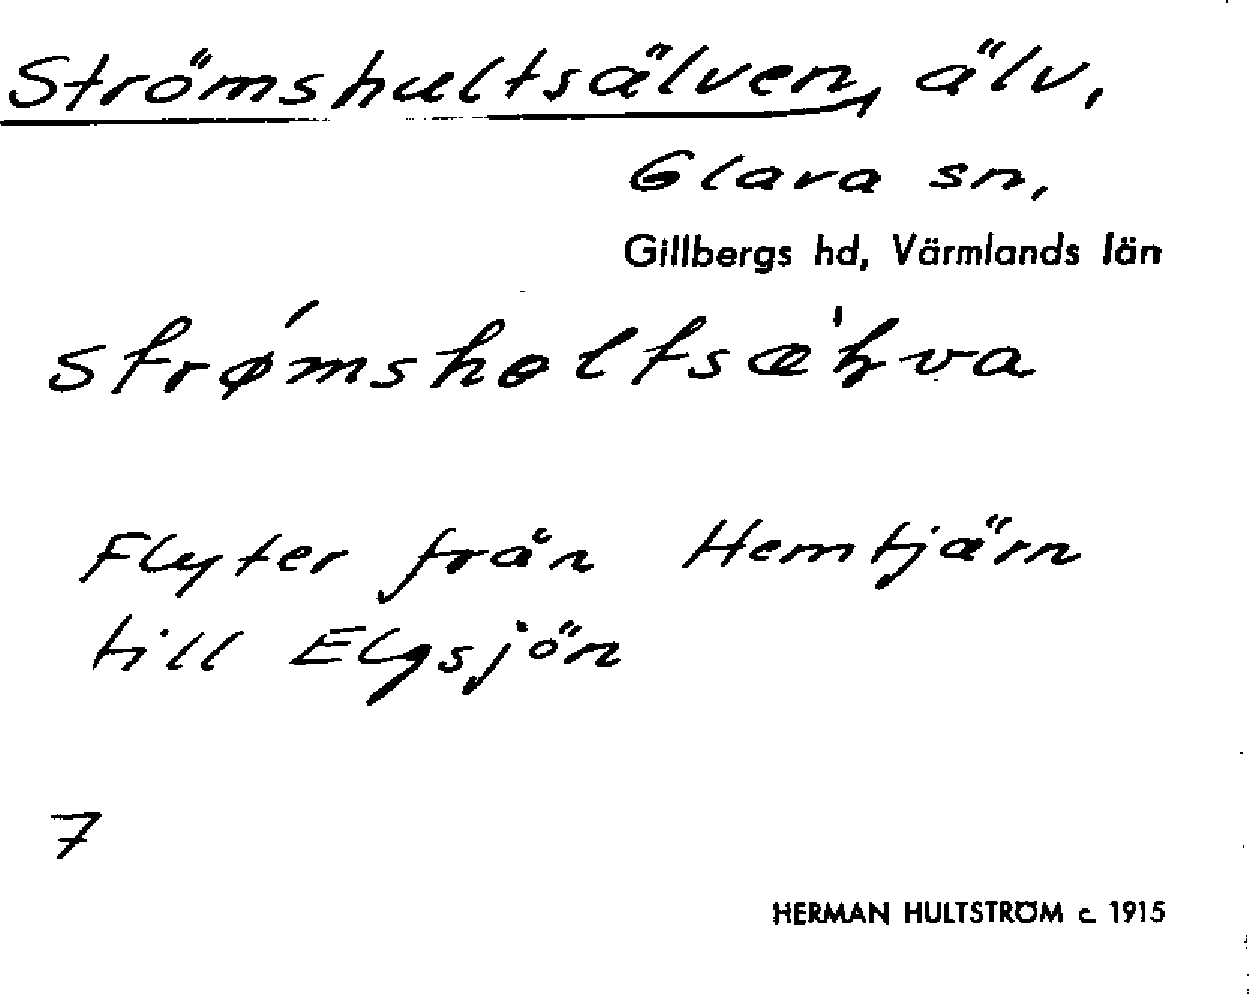 Strömshultsälven, älv,
Glava sn,
Gillbergs hd, Värmlands län
Flyter från Hemtjärn
till Elgsjön
7
HERMAN HULTSTRÖM c. 1915